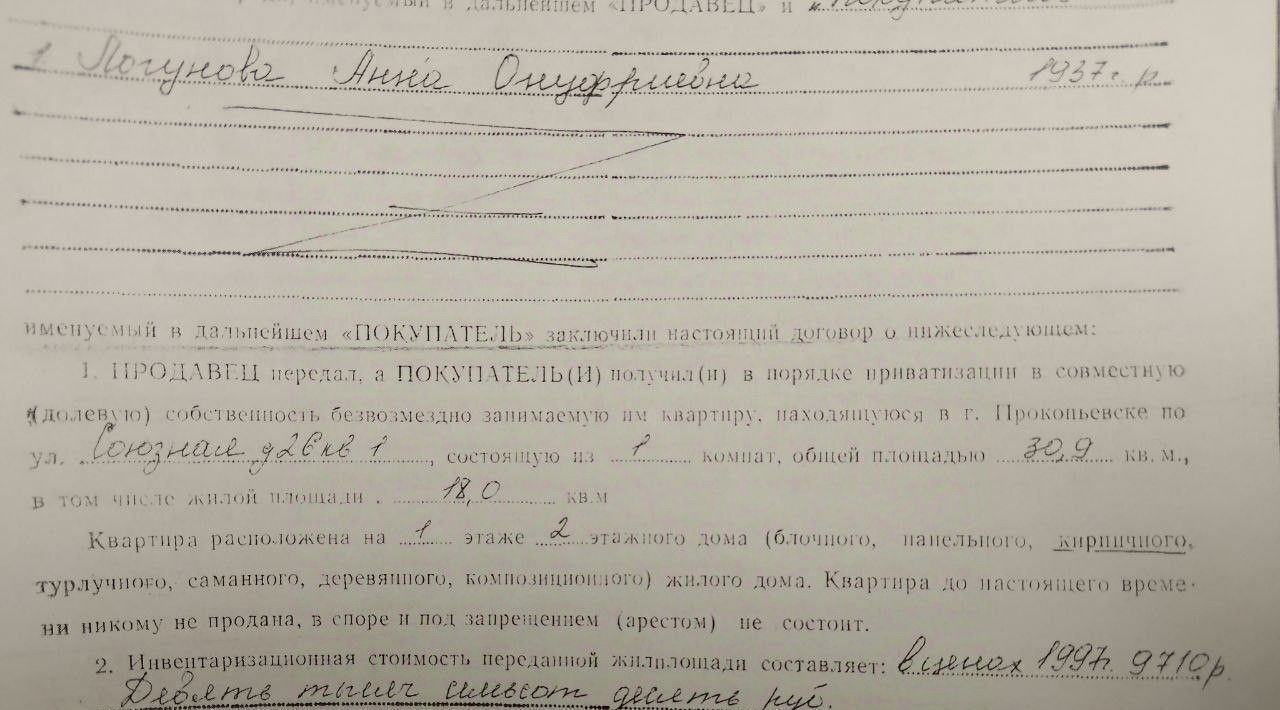 именуемый в дальнейшем «ПРОДАВЕЦ» и
1. Логунова Анна Онуфриевна 1937 г. р.
именуемый в дальнейшем «ПОКУПАТЕЛЬ» заключили настоящий договор о нижеследующем:
1. ПРОДАВЕЦ передал, а ПОКУПАТЕЛЬ(И) получил(и) в порядке приватизации в совместную
(долевую) собственность безвозмездно занимаемую им квартиру, находящуюся в г. Прокопьевске по
ул. Союзная д 26 кв 1, состоящую из 1 комнат, общей площадью 30,9 кв. м.,
в том числе жилой площади . 18,0 кв.м
Квартира расположена на 1 этаже 2 этажного дома (блочного, панельного, кирпичного,
турлучного, саманного, деревянного, композиционного) жилого дома. Квартира до настоящего време-
ни никому не продана, в споре и под запрещением (арестом) не состоит.
2. Инвентаризационная стоимость переданной жилплощади составляет: в ценах 1997г. 9710 р.
Девять тысяч семьсот десять руб.